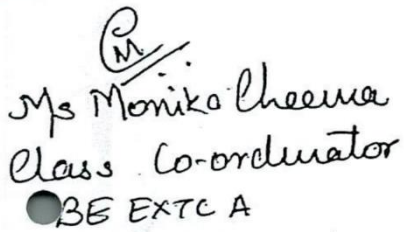 CM
Ms Monika Cheema
Class Co-ordinator
BE EXTC A